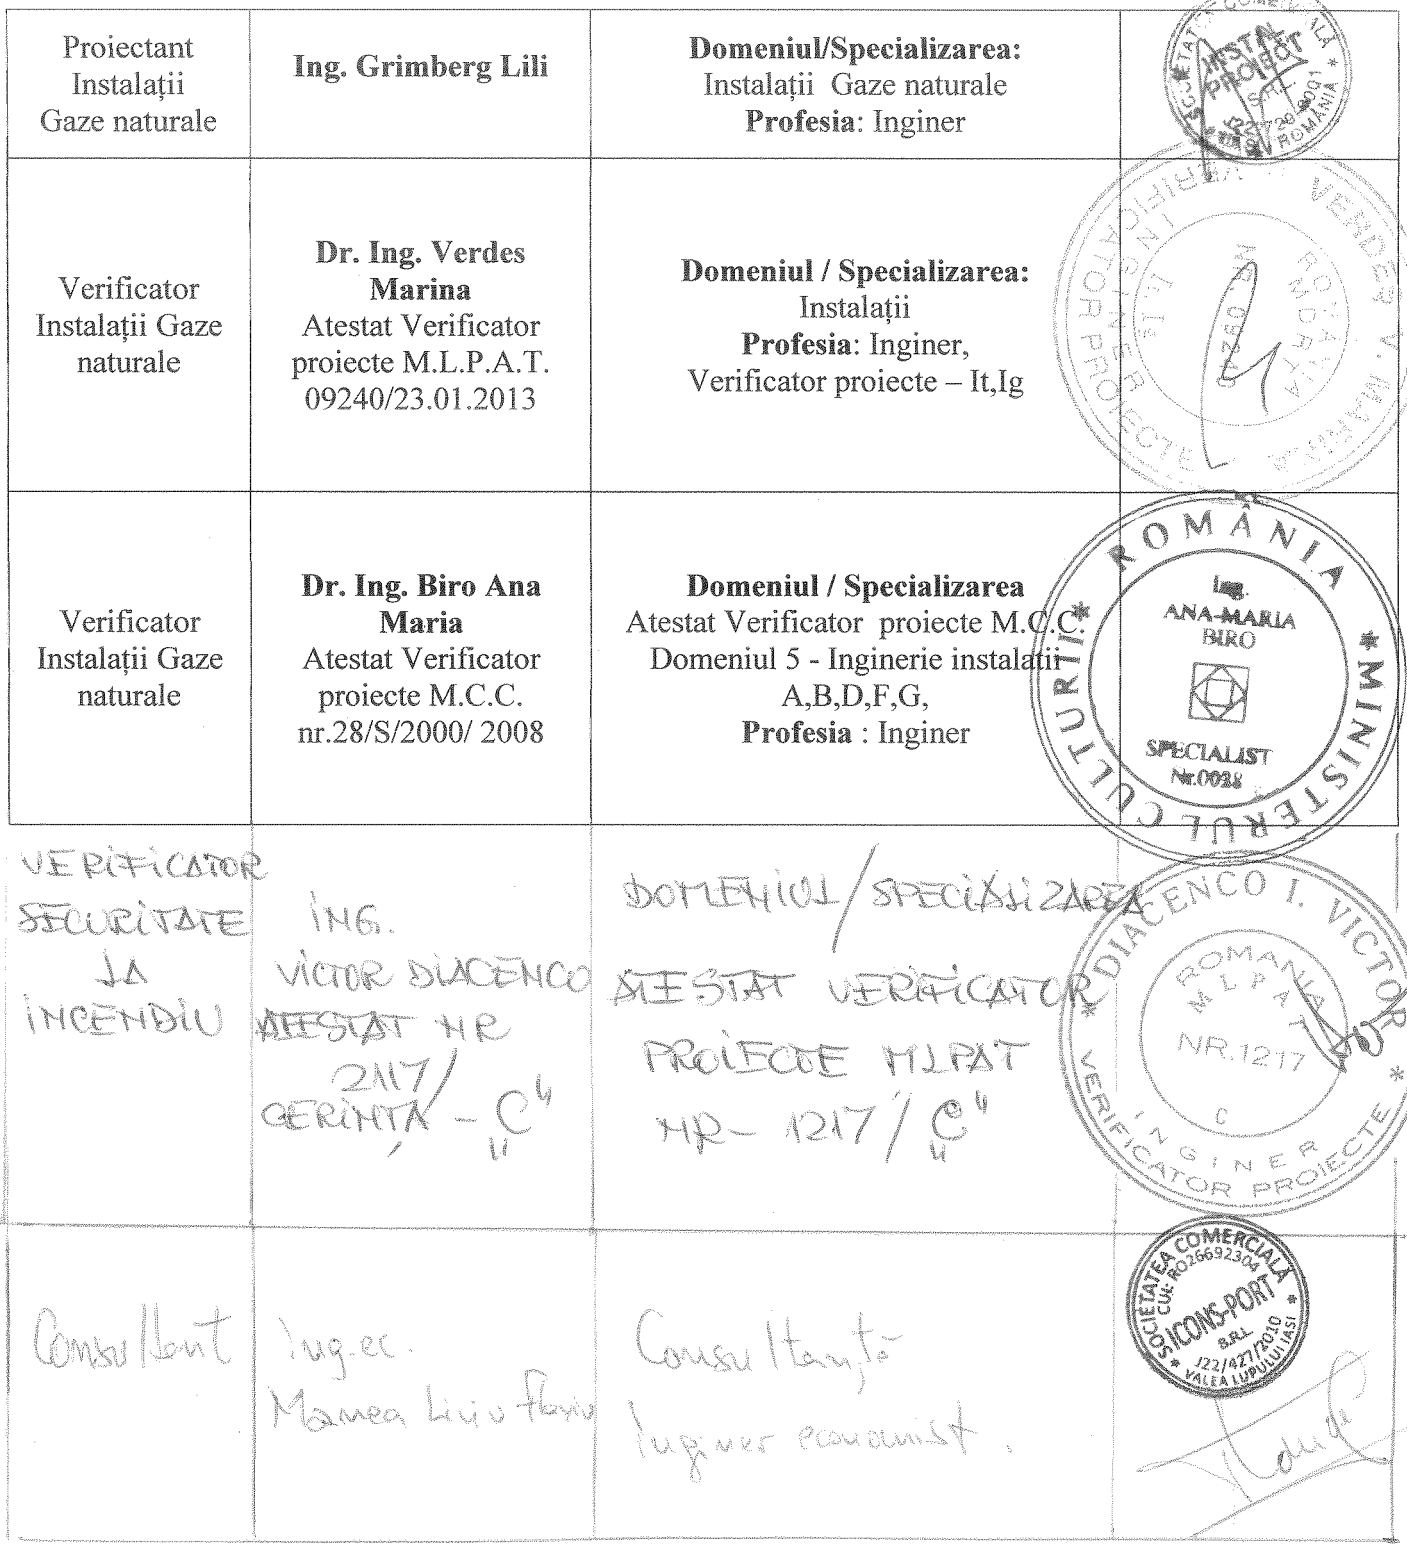 Proiectant
Instalații
Gaze naturale
Ing. Grimberg Lili
Domeniul/Specializarea:
Instalații Gaze naturale
Profesia: Inginer
INSTAL
PROIECT
S.R.L.
ROMÂNIA
Verificator
Instalații Gaze
naturale
Dr. Ing. Verdes
Marina
Atestat Verificator
proiecte M.L.P.A.T.
09240/23.01.2013
Domeniul / Specializarea:
Instalații
Profesia: Inginer,
Verificator proiecte – It,Ig
VERDEȘ V. MARINA
VERIFICATOR PROIECTE
INGINER
Verificator
Instalații Gaze
naturale
Dr. Ing. Biro Ana
Maria
Atestat Verificator
proiecte M.C.C.
nr.28/S/2000/ 2008
Domeniul / Specializarea
Atestat Verificator proiecte M.C.C.
Domeniul 5 - Inginerie instalații
A,B,D,F,G,
Profesia : Inginer
ROMÂNIA * MINISTERUL CULTURII *
Ing.
ANA-MARIA
BIRO
SPECIALIST
Nr.0028
VERIFICATOR
SECURITATE
LA
INCENDIU
ING.
VICTOR DIACENCO
ATESTAT NR
2117/
CERINȚA - „C"
DOMENIUL/SPECIALIZAREA
ATESTAT VERIFICATOR
PROIECTE MLPAT
NR- 1217/„C"
* DIACENCO I. VICTOR *
ROMANIA
MLPAT
NR.1217
C
INGINER
VERIFICATOR PROIECTE
Consultant
Ing.ec.
Manea Liviu Flaviu
Consultanță
Inginer economist.
* SOCIETATEA COMERCIALĂ *
CUI: RO26692304
ICONS-PORT
S.R.L.
J22/427/2010
VALEA LUPULUI IASI